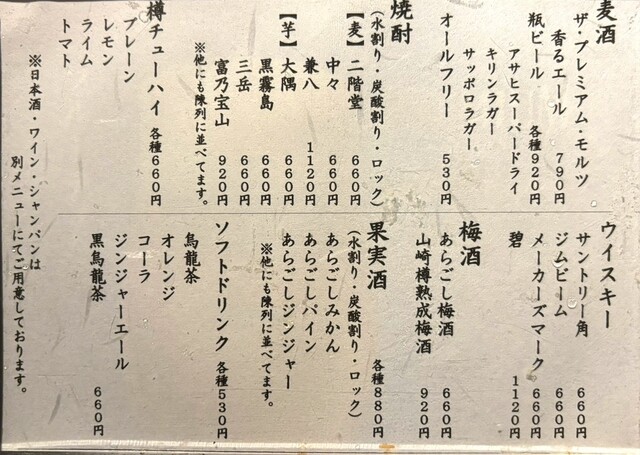 麦酒
ザ・プレミアム・モルツ
香るエール 790円
瓶ビール 各種920円
アサヒスーパードライ
キリンラガー
サッポロラガー
オールフリー 530円
焼酎
(水割り・炭酸割り・ロック)
【麦】二階堂 660円
中々 660円
兼八 1120円
【芋】大隅 660円
黒霧島 660円
三岳 660円
富乃宝山 920円
※他にも陳列に並べてます。
樽チューハイ 各種660円
プレーン
レモン
ライム
トマト
ウイスキー
サントリー角 660円
ジムビーム 660円
メーカーズマーク 660円
碧 1120円
梅酒
あらごし梅酒 660円
山崎樽熟成梅酒 920円
果実酒 各種880円
(水割り・炭酸割り・ロック)
あらごしみかん
あらごしパイン
あらごしジンジャー
※他にも陳列に並べてます。
ソフトドリンク 各種530円
烏龍茶
オレンジ
コーラ
ジンジャーエール
黒烏龍茶 660円
※日本酒・ワイン・シャンパンは
別メニューにてご用意しております。